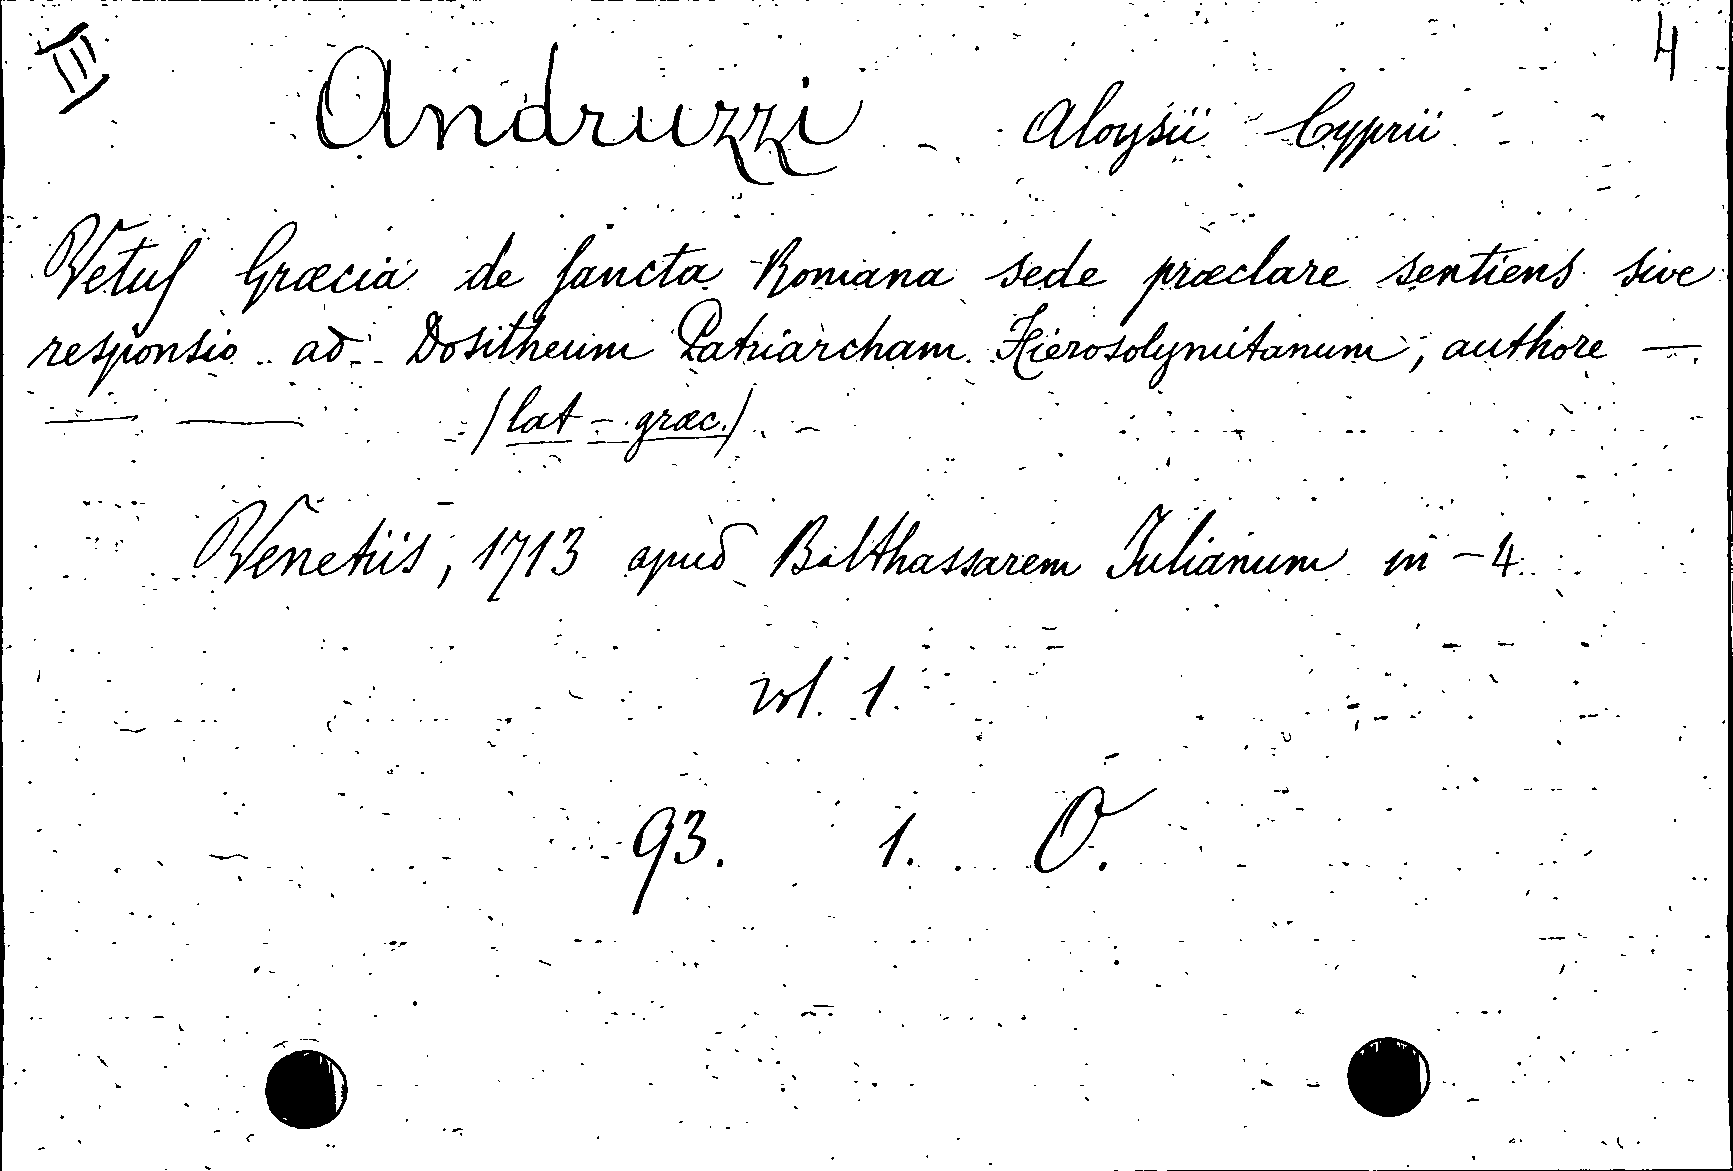 III 4
Andruzzi - Aloysii Cyprii
Vetus Græcia de sancta Romana sede præclare sentiens sive
responsio ad Dositheum Patriarcham Hierosolymitanum, authore —
— — /lat - græc./
Venetiis, 1713 apud Balthassarem Julianum in - 4
vol. 1.
93. 1. O.